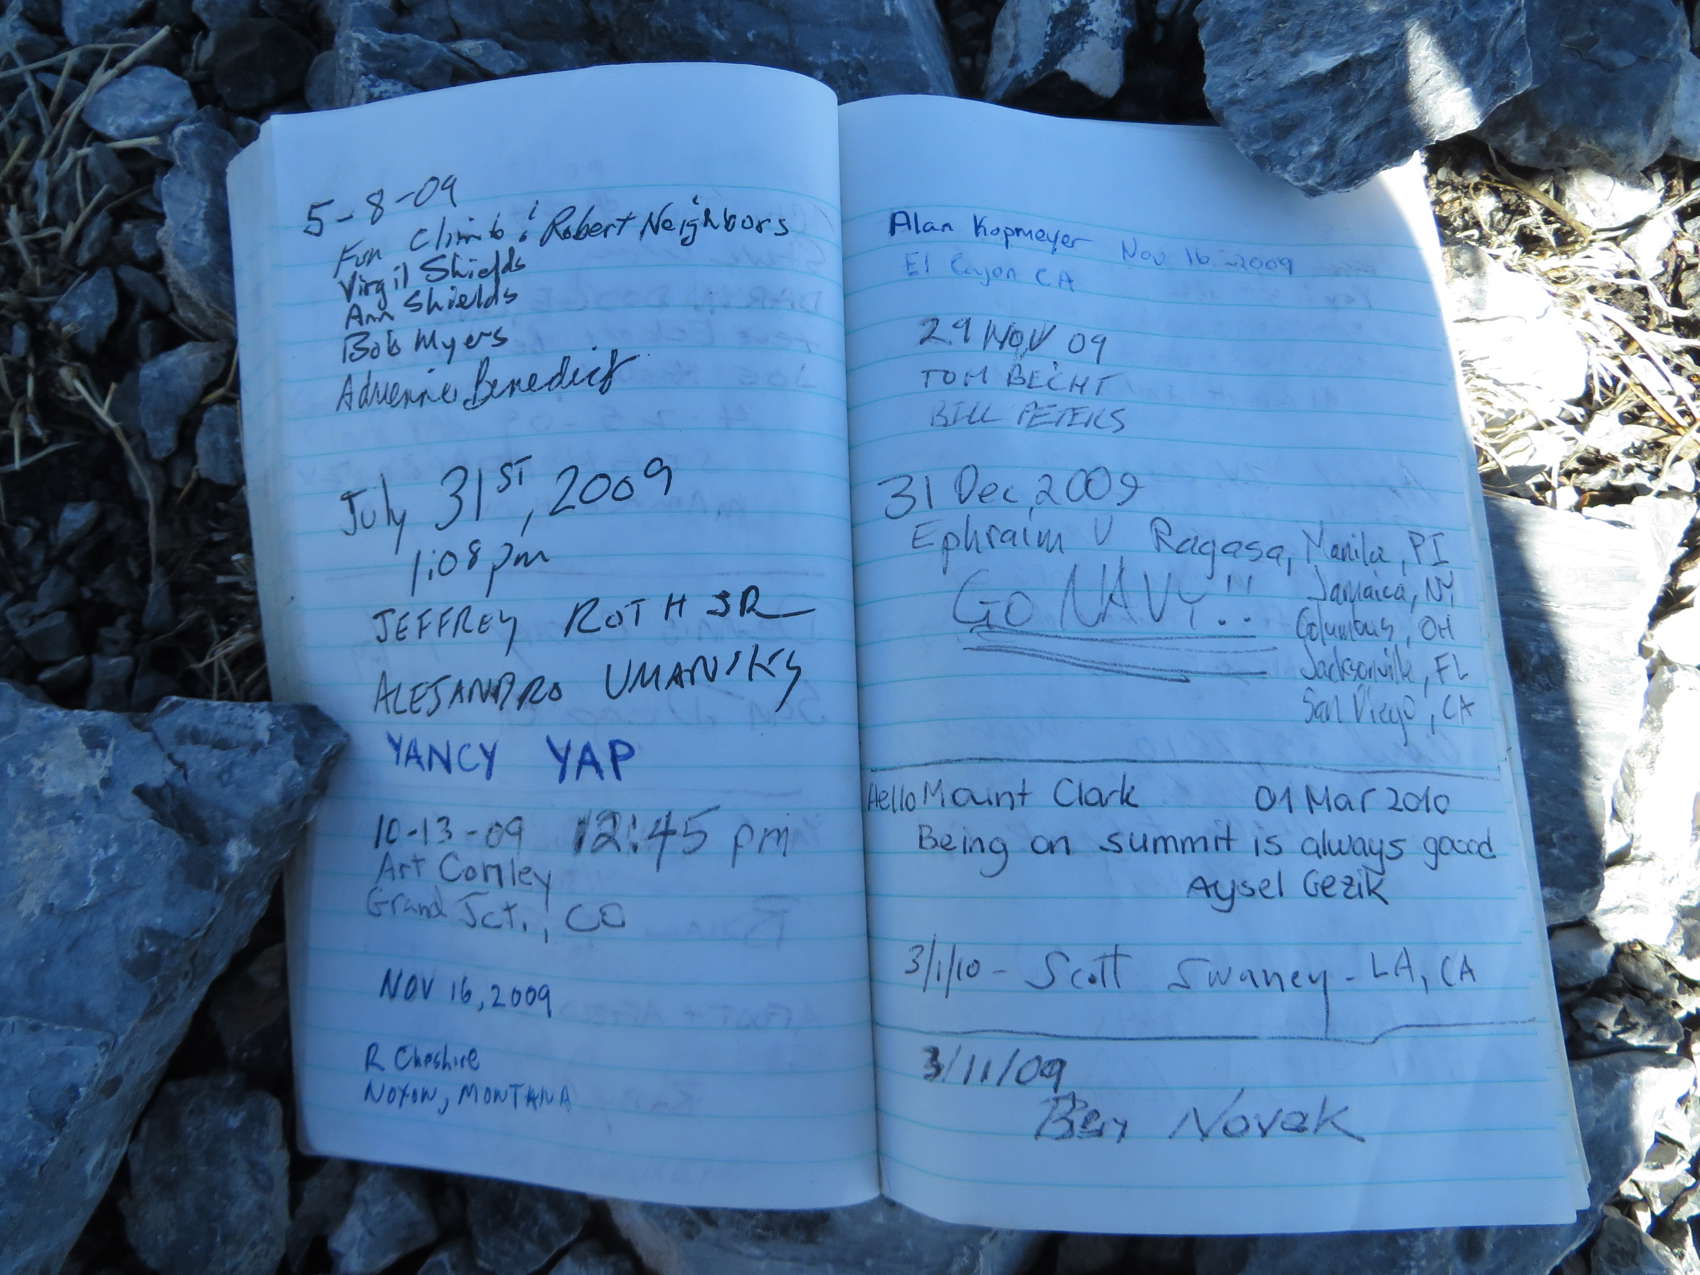 5-8-09
Fun Climb! Robert Neighbors
Virgil Shields
Ann Shields
Bob Myers
Adrienne Benedict
July 31ST, 2009
1:08 pm
JEFFREY ROTH SR
ALEJANDRO UMANSKY
YANCY YAP
10-13-09 12:45 pm
Art Comley
Grand Jct., CO
NOV 16, 2009
R Cheshire
NOXON, MONTANA
Alan Kopmeyer Nov 16 - 2009
El Cajon CA
29 NOV 09
TOM BECHT
BILL PETERS
31 Dec, 2009
Ephraim V Ragasa, Manila, PI
GO NAVY!! Jamaica, NY
Columbus, OH
Jacksonville, FL
San Diego, CA
Hello Mount Clark 01 Mar 2010
Being on summit is always good
Aysel Gezik
3/1/10 - Scott Swaney - LA, CA
3/11/09
Novak